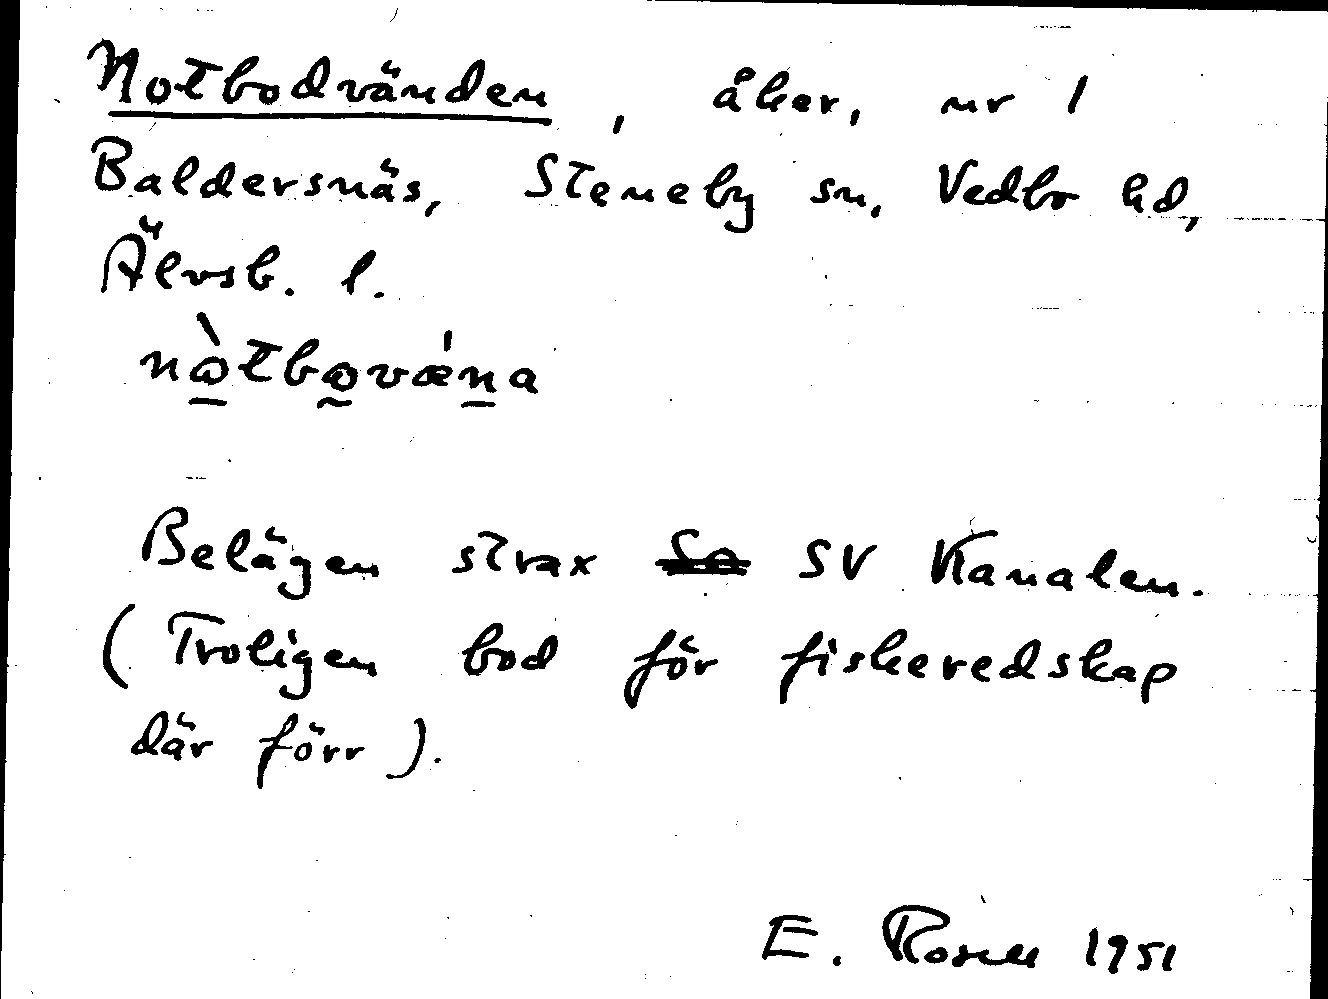 Notbodvänden, åker, nr 1
Baldersnäs, Steneby sn, Vedbo hd,
Älvsb. l.
nòtbovǽna
Belägen strax So SV Kanalen.
(Troligen bod för fiskeredskap
där förr).
E. Rosell 1951